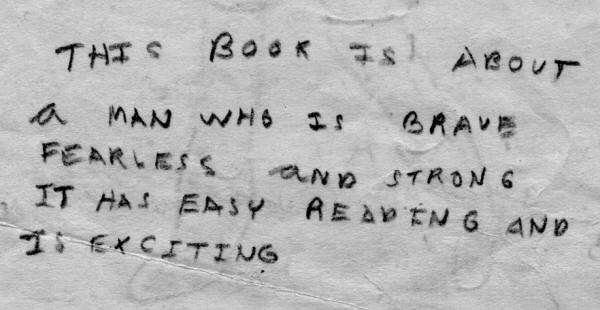 THIS BOOK IS ABOUT
a MAN WHO IS BRAVE
FEARLESS aND STRONG
IT HAS EASY READING AND
IS EXCITING